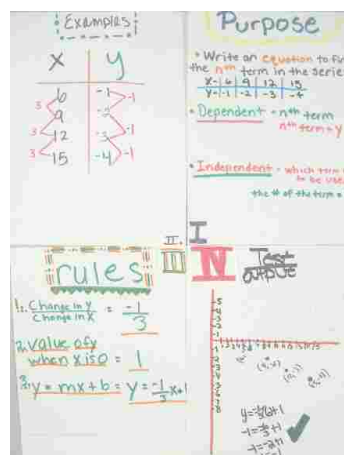 Examples
x y
6 -1
9 -2
12 -3
15 -4
3 -1
3 -1
3 -1
II.
Purpose
• Write an equation to fi
the nth term in the serie
x- | 6 | 9 | 12 | 15
y- | -1 | -2 | -3 | -4
• Dependent - nth term
nth term = y
• Independent - which term
to be use
the # of the term =
I
rules
III
1. Change in y = -1
Change in x 3
2. Value of y
when x is 0 = 1
3. y = mx+b = y = -1/3 x+1
IV
Test
y=-1/3·6+1
-1=-6/3+1
-1=-2+1